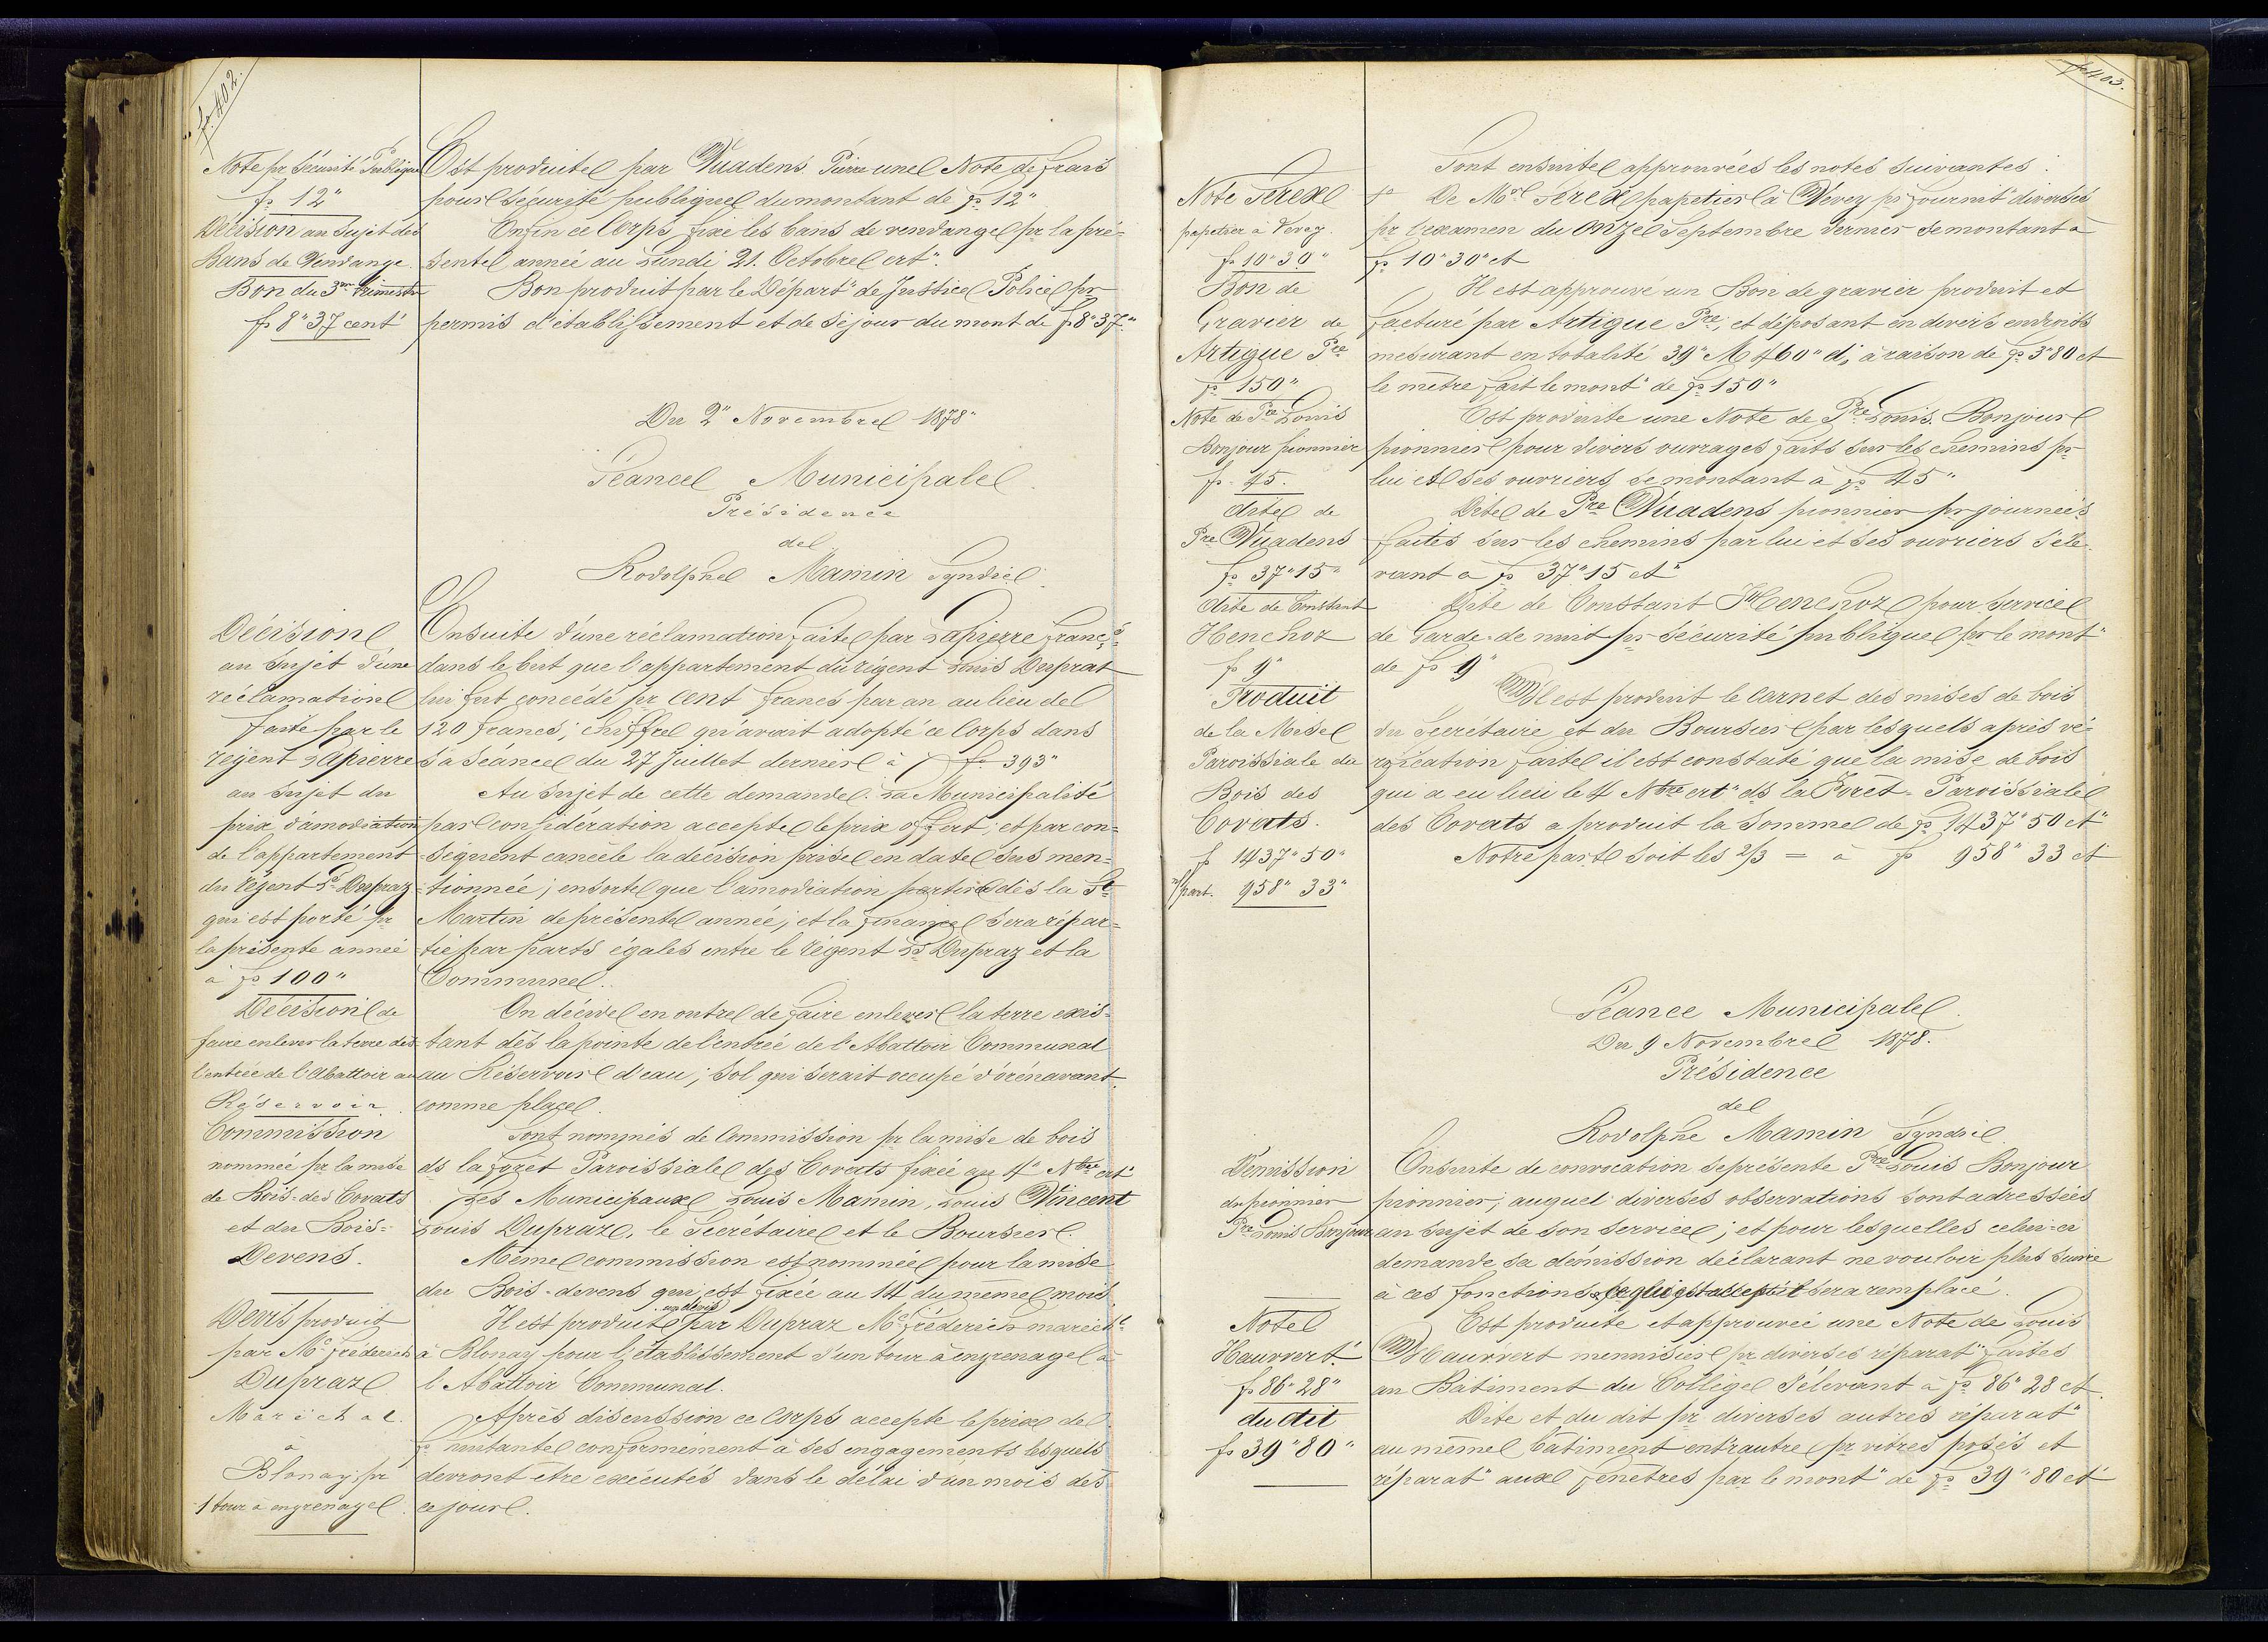 fo 402.
Note pr Sécurité Publique
fr 12"
Décision au sujet des
Bans de Vendange.
Bon du 3me trimestre
fr 8"37 cent
Est produite par Vuadens Pierre une Note de frais
pour Sécurité publique du montant de fr 12"
Enfin ce Corps fixe les bans de vendange pr la pré-
sente année au Lundi 21. Octobre crt"
Bon produit par le Départ" de Justice Police pr
permis d'établissement et de séjour du mont de fr 8"37"
Du 2" Novembre 1878"
Séance Municipale.
Présidence
de
Rodolphe Mamin Syndic.
Décision
au sujet d'une
réclamation
faite par le
régent Lapierre
au sujet du
prix d'amodiation
de l'appartement
du régent Ls Dupraz
qui est porté pr
la présente année
à fr 100"
Ensuite d'une réclamation faite par Lapierre Franç:s
dans le but que l'appartement du régent Louis Duprat
lui fut concédé pr cent francs par an au lieu de
120 francs; chiffre qu'avait adopté ce Corps dans
sa Séance du 27 Juillet dernier à fo 393"
Au sujet de cette demande. La Municipalité
par considération accepte le prix offert; et par con=
séquent cancèle la décision prise en date sus men=
tionnée; ensorte que l'amodiation partira dès la St
Martin de présente année; et la finance sera répar=
tie par parts égales entre le régent Ls Dupraz et la
Commune.
Décision de
faire enlever la terre dès
l'entrée de l'Abattoir au
Réservoir.
On décide en outre de faire enlever la terre exis=
tant dès la pointe de l'entrée de l'Abattoir Communal
au Réservoir d'eau; sol qui serait occupé d'orénavant
comme place.
Commission
nommée pr la mise
de Bois des Covats
et du Bois=
Devens.
Sont nommés de Commission pr la mise de bois
ds la Foret Paroissiale des Covats fixée au 4" Nbre crt"
Les Municipaux Louis Mamin, Louis Vincent
Louis Dupraz, le Secrétaire et le Boursier.
Même commission est nommée pour la mise
du Bois-devens qui est fixée au 14 du même mois
Devis produit
par Mc Fréderich
Dupraz
Maréchal
à
Blonay pr
1 tour à engrenage.
un devis
Il est produit par Dupraz Mc Fréderich maréch:l
à Blonay pour l'établissement d'un tour à engrenage à
l'Abattoir Communal.
Après discussion ce Corps accepte le prix de
fr huitante conformément à ses engagements lesquels
devront être exécutés dans le délai d'un mois dès
ce jour.
fo 403.
Sont ensuite approuvées les notes suivantes:
Note Serex
papetier à Vevey.
fr 10"30"
De Mr Serex papetier à Vevey pr fournit" diverses
pr l'examen du onze Septembre dernier se montant à
fr 10"30 ct
Bon de
Gravier de
Artigue Pre
fr 150"
Il est approuvé un Bon de gravier produit et
facturé par Artigue Pre, et déposant en divers endroits
mesurant en totalité 39" M 460" d; à raison de fr 3"80 ct
le mètre fait le mont" de fr 150"
Note de Pre Louis
Bonjour pionnier
fr 45.
Est produite une Note de Pre Louis Bonjour
pionnier pour divers ouvrages faits sur les chemins pr
lui et ses ouvriers se montant à fr 45"
dite de
Pre Vuadens
fr 37"15"
Dite de Pre Vuadens pionnier pr journées
faites sur les chemins par lui et ses ouvriers s'éle-
vant à fr 37"15 ct"
dite de Constant
Henchoz
fr 9"
Dite de Constant Henchoz pour service
de Garde de nuit pr sécurité publique pr le mont"
de fr 9"
Produit
de la Mise
Paroissiale du
Bois des
Covats.
fr 1437"50"
n/part. 958"33"
Il est produit le carnet des mises de bois
du Secrétaire et du Boursier par lesquels après vé-
rification faite il est constaté que la mise de bois
qui a eu lieu le 4 Nbre crt" ds la Forêt-Paroissiale
des Covats a produit la Somme de fr 1437"50 ct"
Notre part soit les 2/3 = à fr 958"33 ct
Séance Municipale.
Du 9 Novembre 1878.
Présidence
de
Rodolphe Mamin Syndic.
Démission
du pionnier
Pre Louis Bonjour
Ensuite de convocation se présente Pre Louis Bonjour
pionnier; auquel diverses observations sont adressées
au sujet de son service; et pour lesquelles celui-ci
demande sa démission déclarant ne vouloir plus suivre
à ces fonctions, ce qui est accepté il sera remplacé.
Note
Hauvvert.
fr 86"28"
Est produite et approuvée une Note de Louis
Hauvvert menuisier pr diverses réparat" faites
au Bâtiment du Collège s'élevant à fr 86"28 ct.
du dit
fr 39"80"
Dite et du dit pr diverses autres réparat"
au même bâtiment entr'autre pr vitres posés et
réparat" aux fenêtres par le mont" de fr 39"80 ct